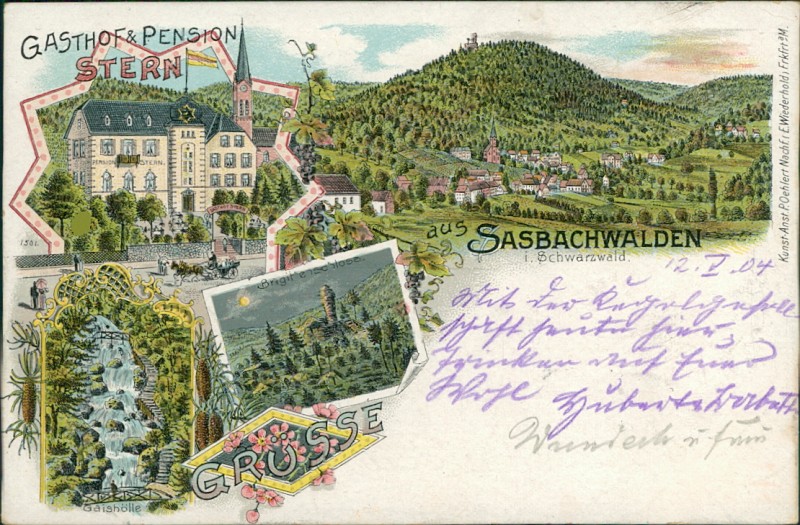 GASTHOF & PENSION
STERN
PENSION STERN.
1561.
aus SASBACHWALDEN
i. Schwarzwald.
Brigittenschloss
Gaishölle
GRÜSSE
Kunst-Anst. P. Oehlert Nachf. i. E. Wiederhold i. Frkfrt a/M.
12. V. 04
Mit der Kegelgesell
schaft heute hier,
trinken auf Euer
Wohl Hubert
u Frau